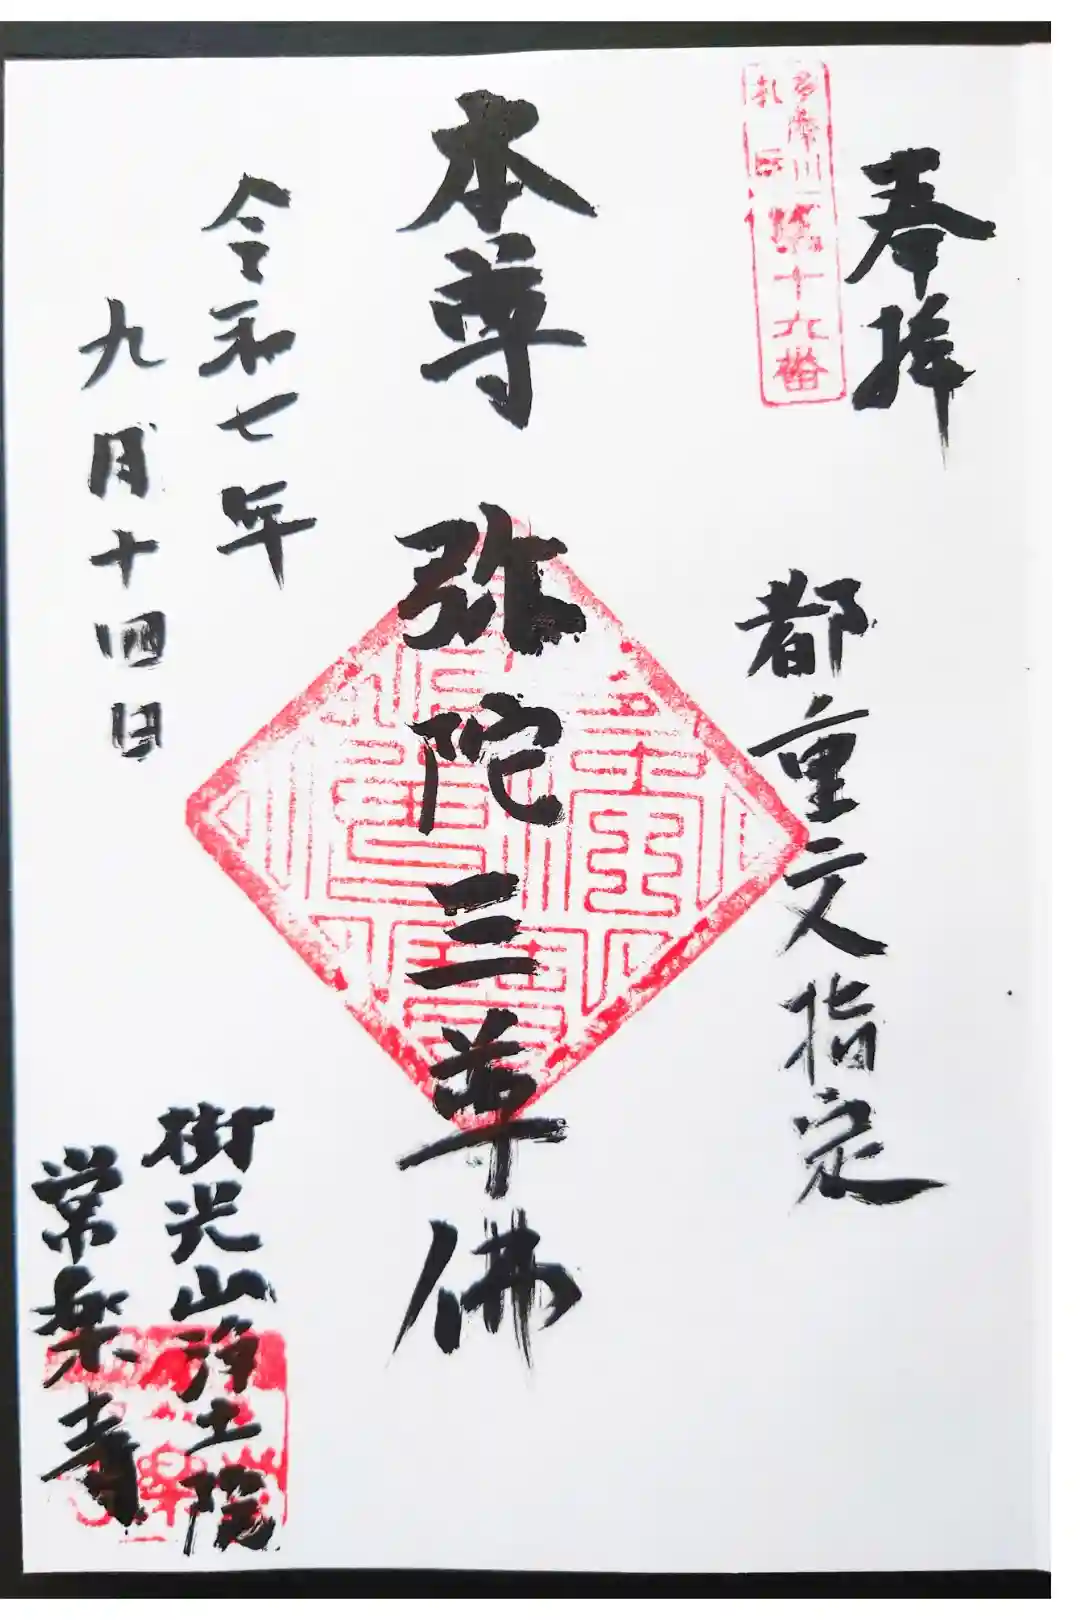 奉拝
多摩川
札所
第十九番
都重文指定
本尊 弥陀三尊佛
令和七年
九月十四日
樹光山浄土院
常楽寺